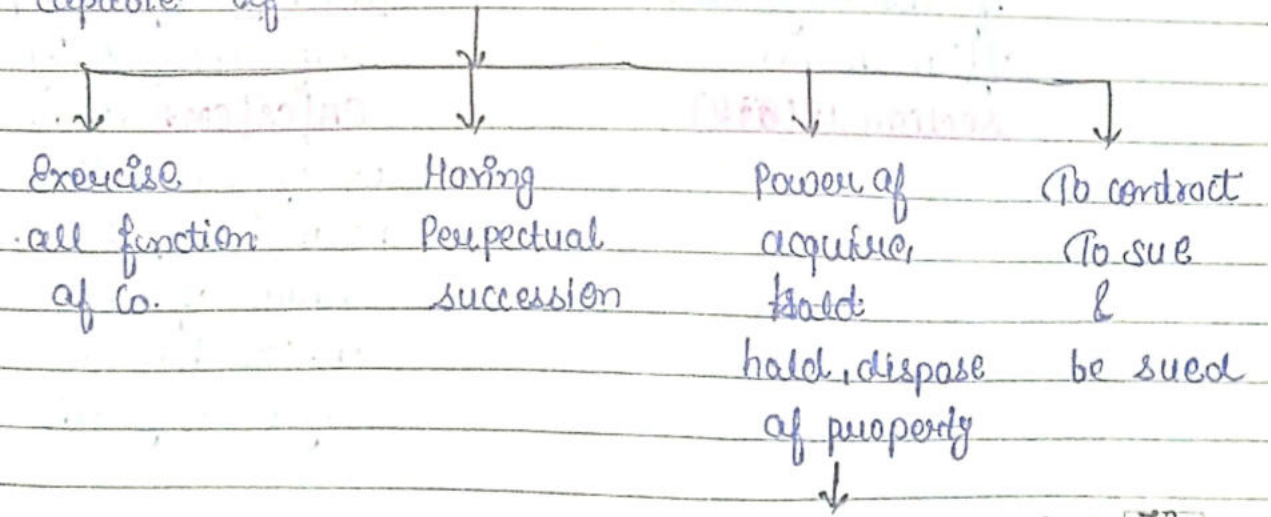 capable of
Exercise
all function
of Co.
Having
Perpectual
succession
Power of
acquire,
hold, dispose
of property
To contract
To sue
&
be sued